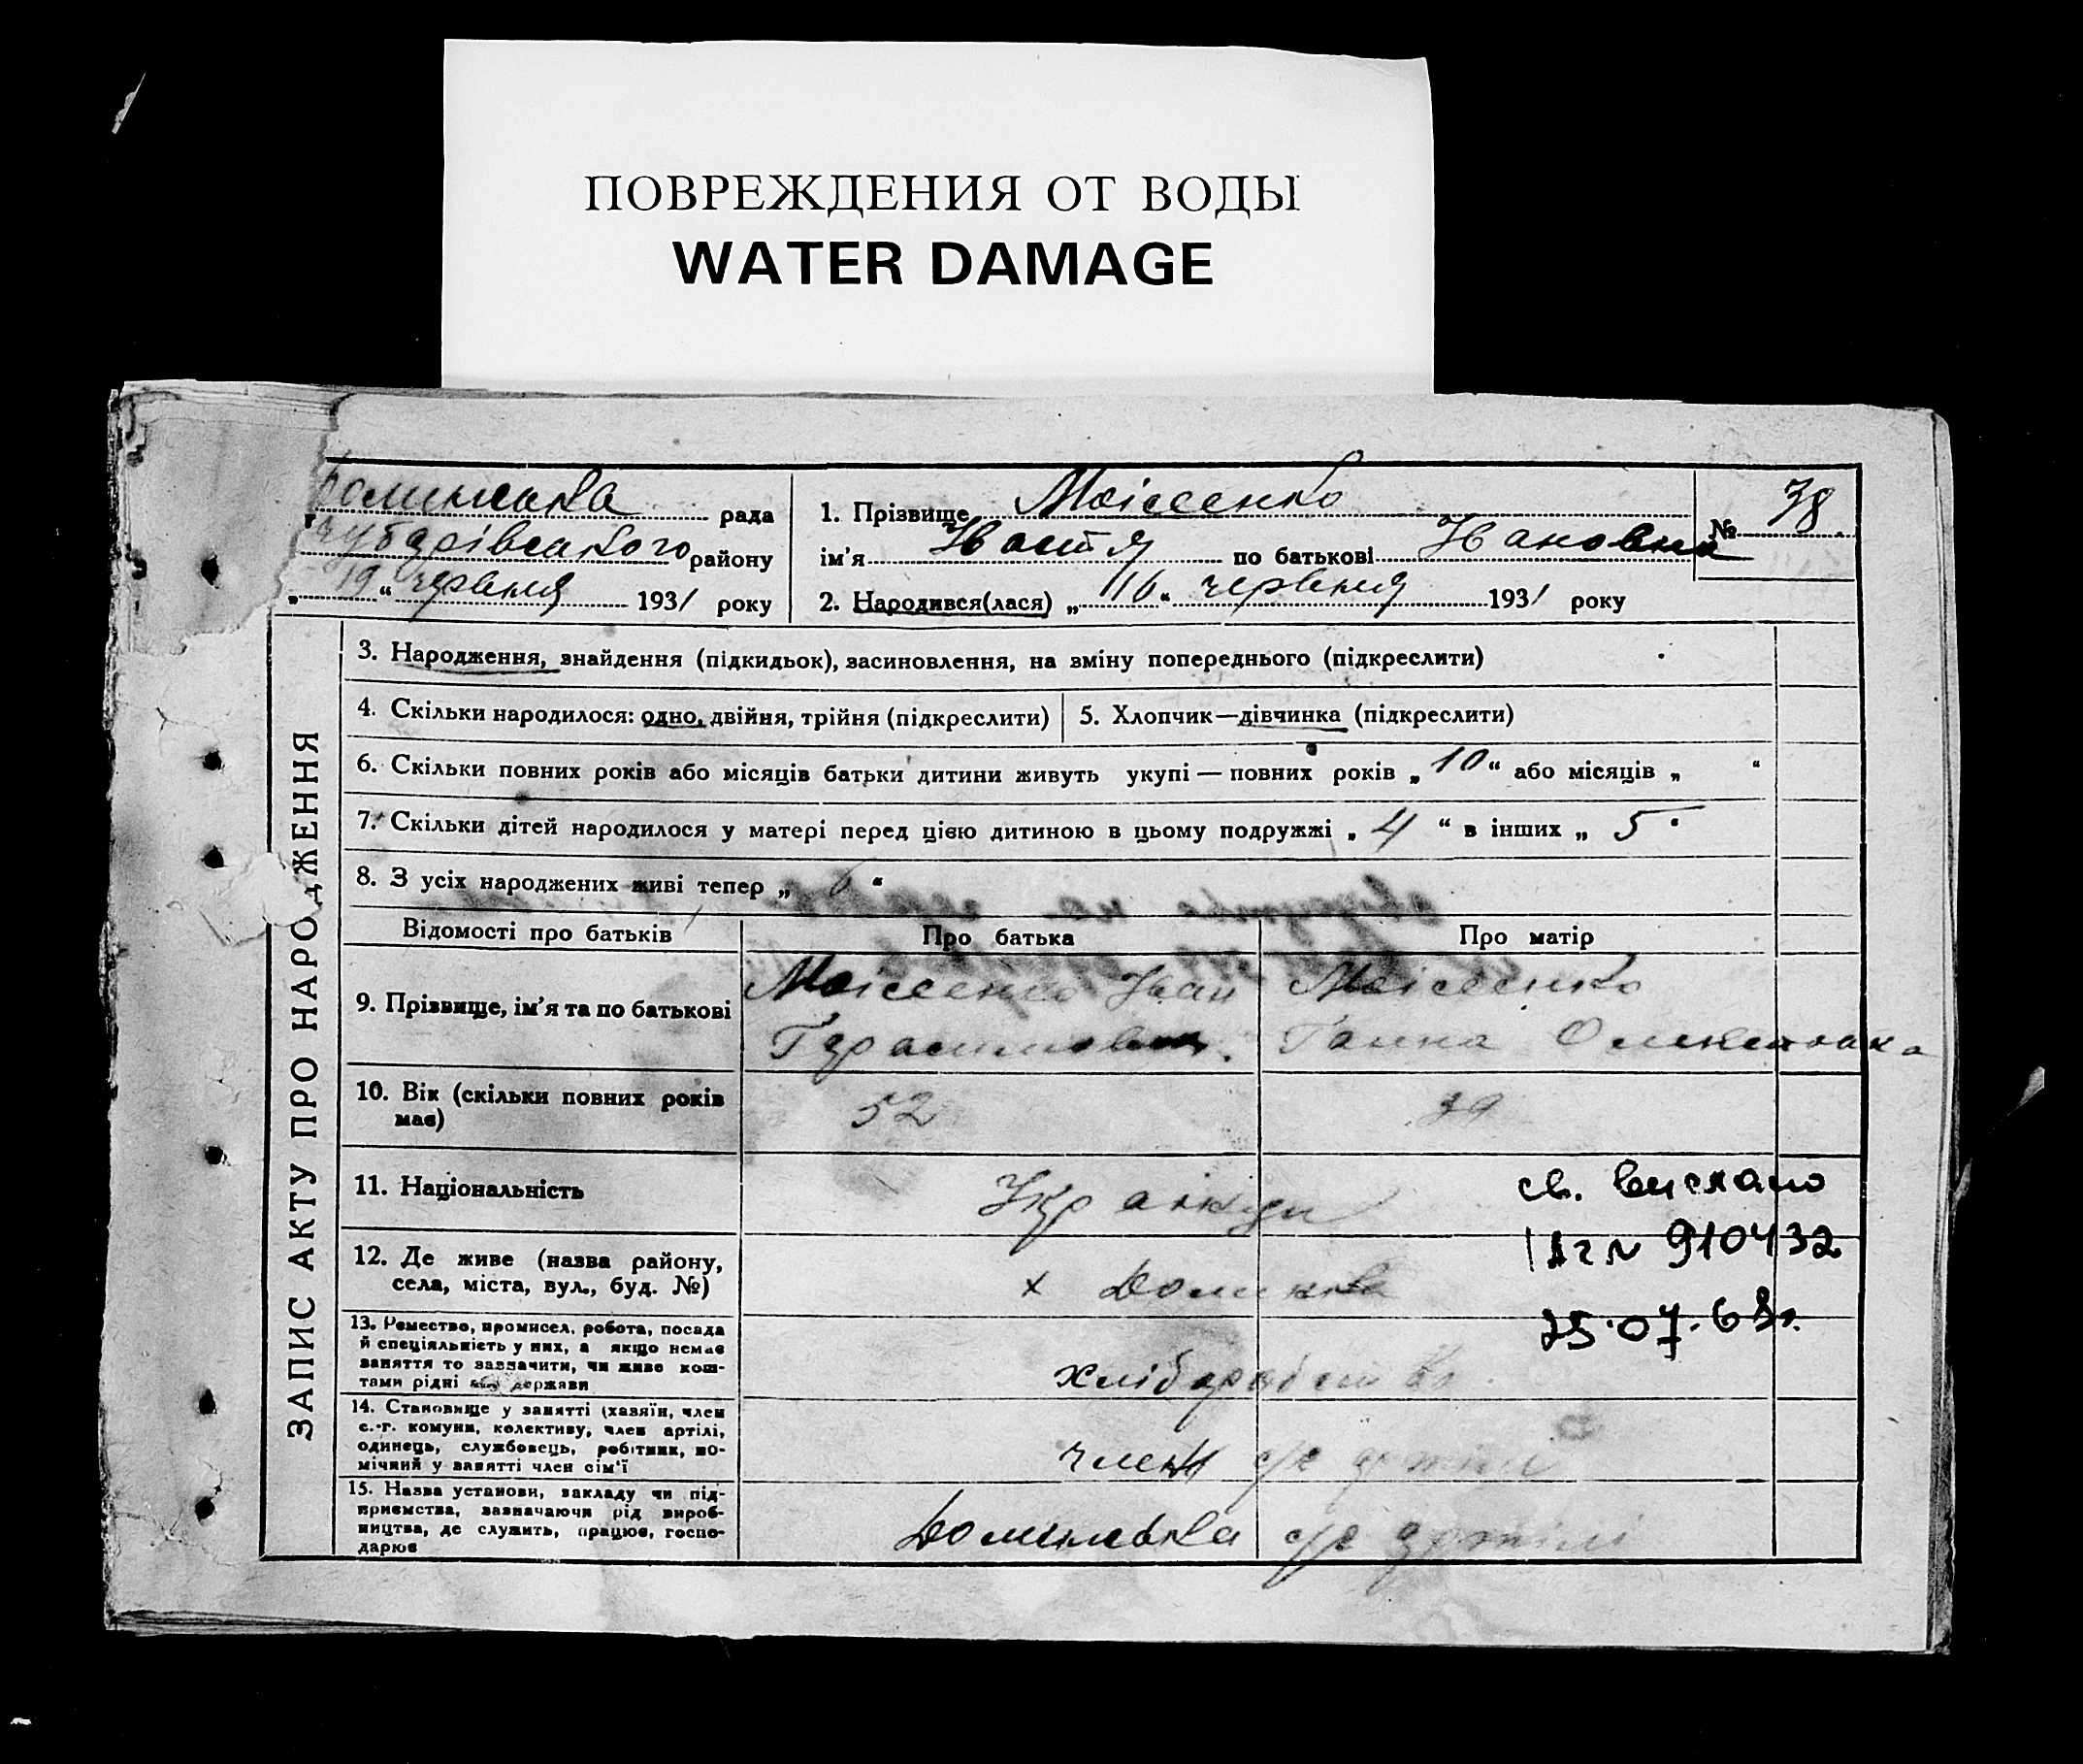 ПОВРЕЖДЕНИЯ ОТ ВОДЫ
WATER DAMAGE
рада
району
„ 19 “ червня 1931 року
1. Прізвище Моісеенко
ім'я Настя по батькові Ивановна
№ 38
2. Народився(лася) „ 16 “ червня 1931 року
ЗАПИС АКТУ ПРО НАРОДЖЕННЯ
3. Народження, знайдення (підкидьок), засиновлення, на зміну попереднього (підкреслити)
4. Скільки народилося: одно, двійня, трійня (підкреслити)
5. Хлопчик—дівчинка (підкреслити)
6. Скільки повних років або місяців батьки дитини живуть укупі — повних років „ 10 “ або місяців „ “
7. Скільки дітей народилося у матері перед цією дитиною в цьому подружжі „ 4 “ в інших „ 5 “
8. З усіх народжених живі тепер „ 6 “
Відомості про батьків
Про батька
Про матір
9. Прізвище, ім'я та по батькові
Моісеенко Іван
Моісеенко
Ганна
10. Вік (скільки повних років
має)
52
39
11. Національність
св. вислано
№ 910432
12. Де живе (назва району,
села, міста, вул., буд. №)
х
25.07.68г.
13. Ремество, промисел, робота, посада
й спеціяльність у них, а якщо немає
заняття то зазначити, чи живе кош-
тами рідні держави
14. Становище у занятті (хазяїн, член
с.-г. комуни, колективу, член артілі,
одинець, службовець, робітник, по-
мічний у занятті член сім'ї
член с/г артілі
15. Назва установи, закладу чи під-
приємства, зазначаючи рід вироб-
ництва, де служить, працює, госпо-
дарює
с/г артілі